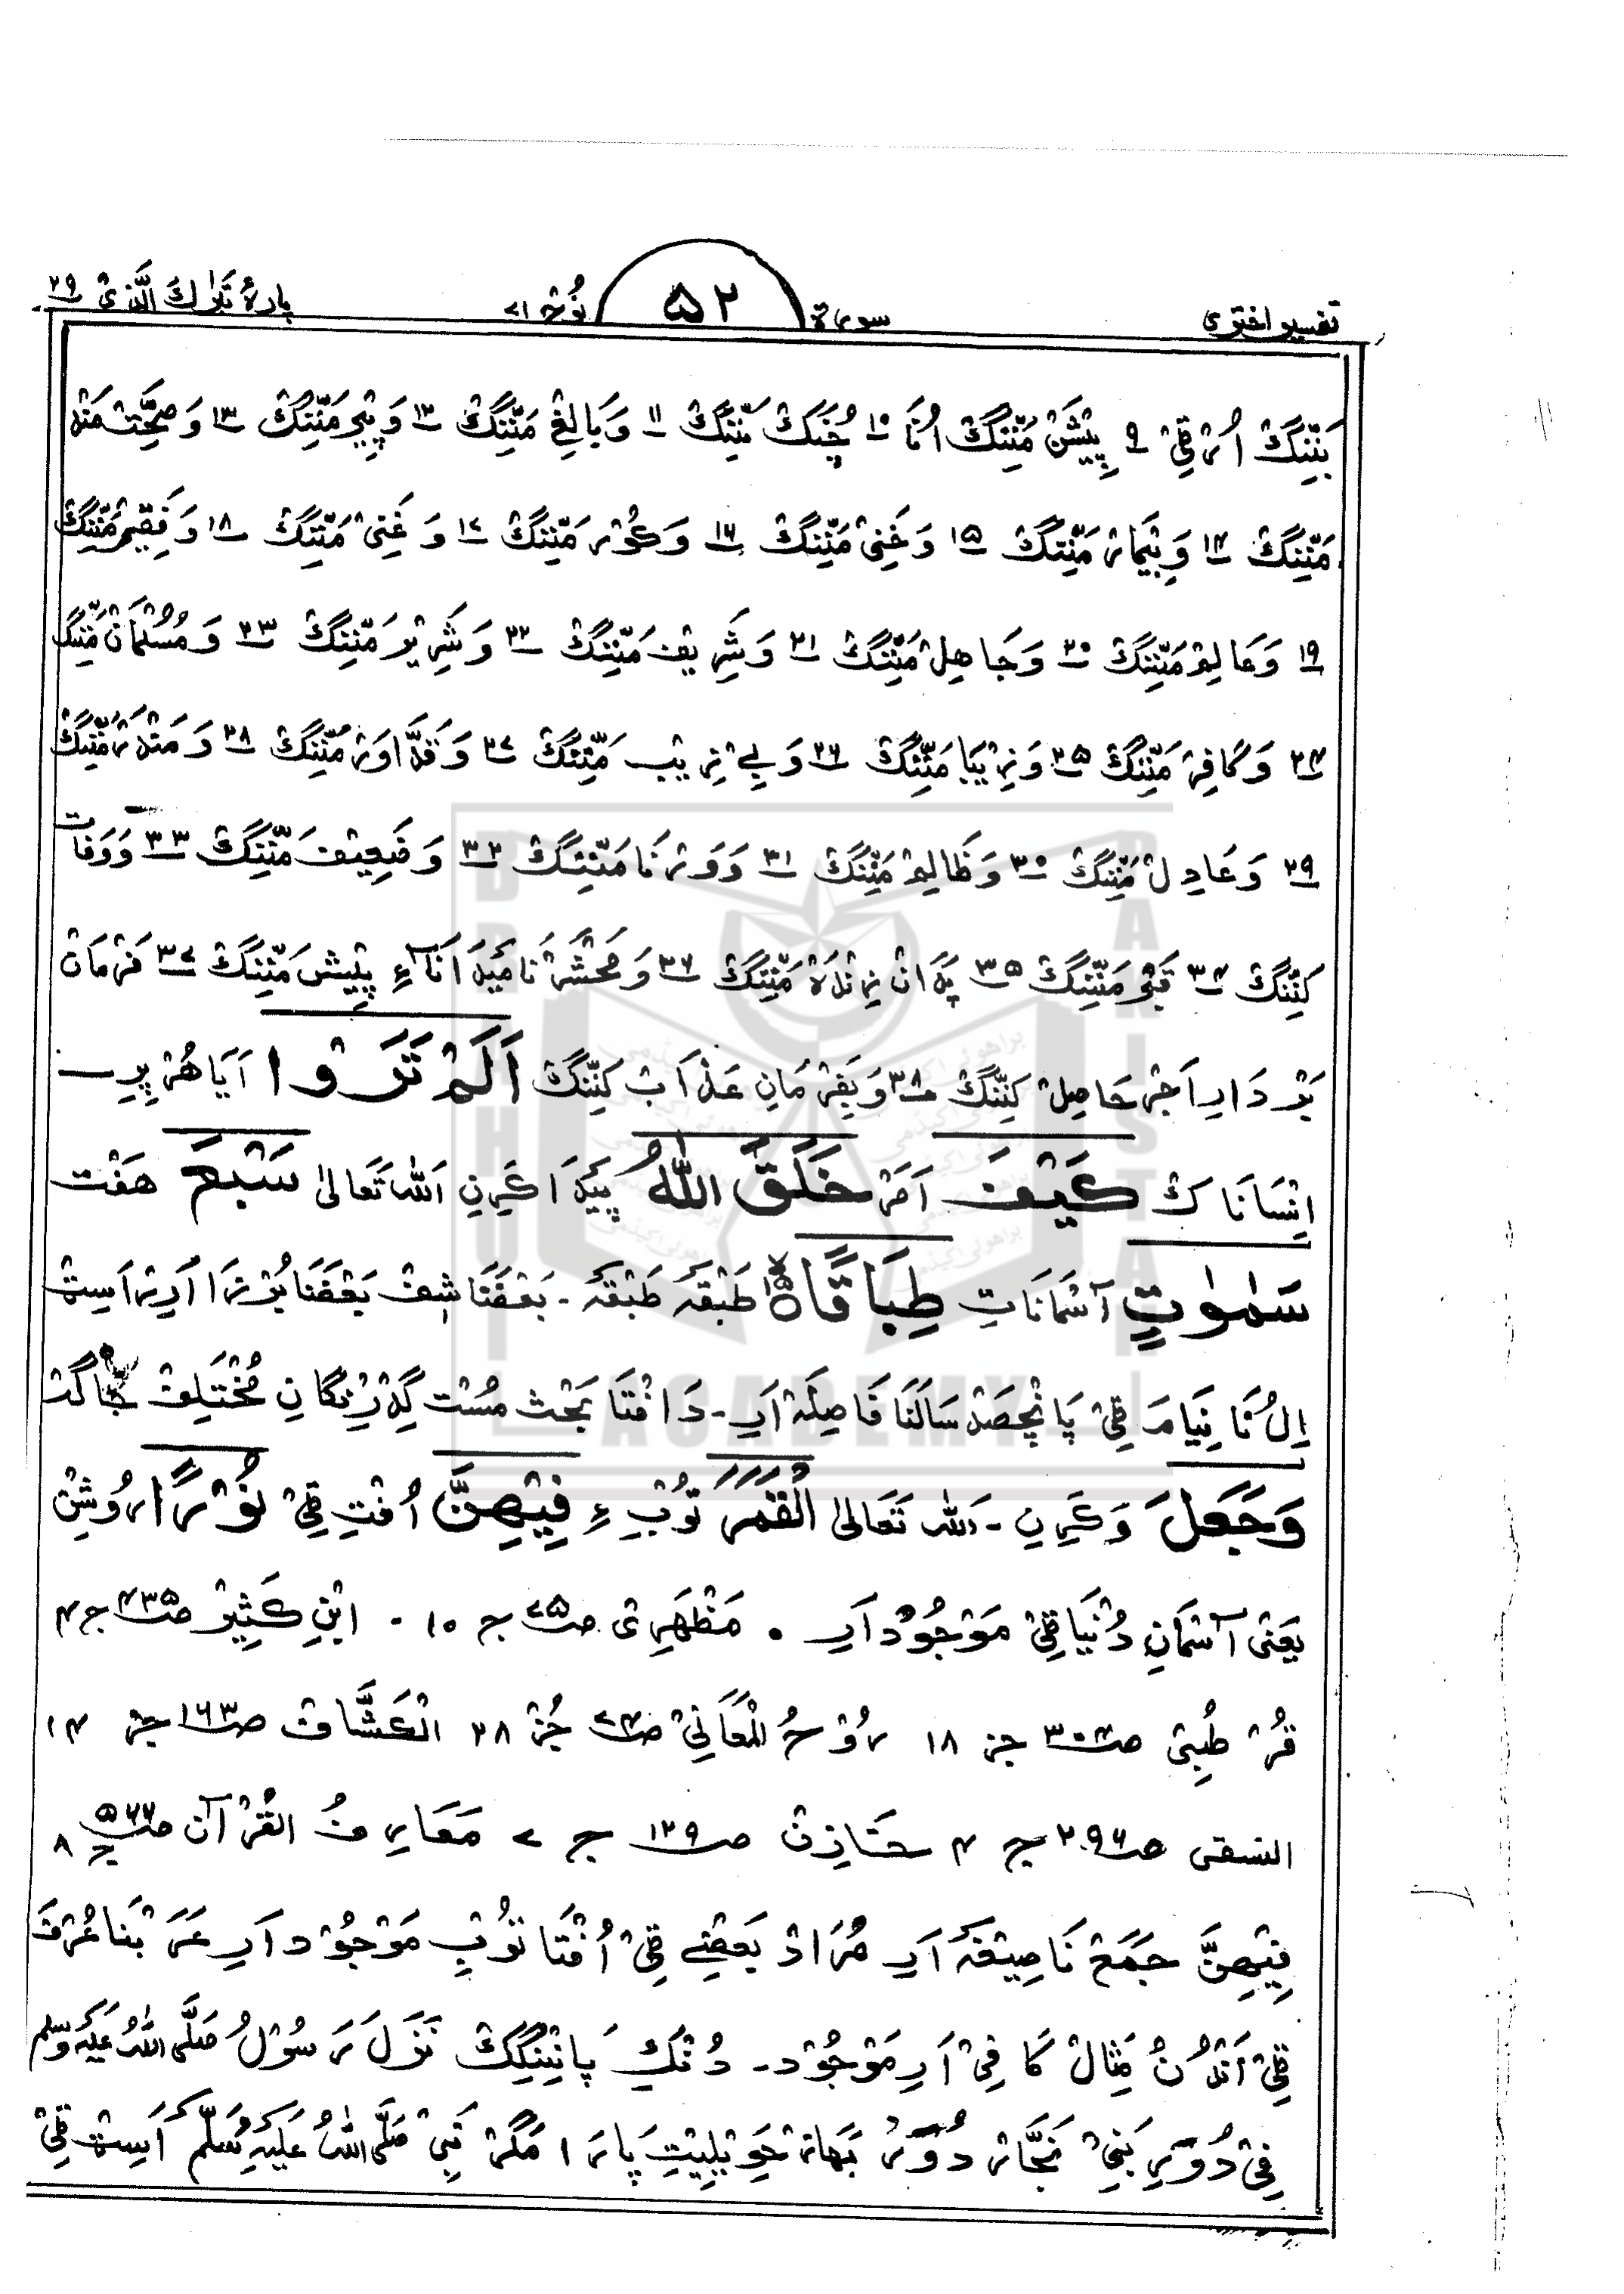 تفسیر اختری سورة ۵۲ نُوح ۷۱ پارۂ تَبٰرَكَ الَّذِیْ ۲۹
بَنِّنِگْ اُرْقِیْ ۹ پِیْشَنْ مَنِّنِگْ اُنَا ۱۰ چُنَکْ مَنِّنِگْ ۱۱ وَبَالِغْ مَنِّنِگْ ۱۲ وَپِیْر مَنِّنِگْ ۱۳ وَصِحَّتْ مَنْد
مَنِّنِگْ ۱۴ وَبِیْمَارْ مَنِّنِگْ ۱۵ وَخَنِیْ مَنِّنِگْ ۱۶ وَکُوْرْ مَنِّنِگْ ۱۷ وَغَنِیْ مَنِّنِگْ ۱۸ وَفِقِیْر مَنِّنِگْ
۱۹ وَعَالِمْ مَنِّنِگْ ۲۰ وَجَاهِلْ مَنِّنِگْ ۲۱ وَشَرِیْف مَنِّنِگْ ۲۲ وَشَرِیْر مَنِّنِگْ ۲۳ وَمُسُلْمَانْ مَنِّنِگْ
۲۴ وَکَافِرْ مَنِّنِگْ ۲۵ وَزِیْبَا مَنِّنِگْ ۲۶ وَبِےْ زِیْب مَنِّنِگْ ۲۷ وَقَدَّاوَرْ مَنِّنِگْ ۲۸ وَمَنْدَرْ مَنِّنِگْ
۲۹ وَعَادِلْ مَنِّنِگْ ۳۰ وَظَالِمْ مَنِّنِگْ ۳۱ وَوَرْنَا مَنِّنِگْ ۳۲ وَضَعِیْف مَنِّنِگْ ۳۳ وَوَفَات
کَنِّنِگْ ۳۴ قَبْر مَنِّنِگْ ۳۵ پَدَانْ زِنْدَهْ مَنِّنِگْ ۳۶ وَمَحْشَرْنَا مَیْدَانَآءِ پِیْش مَنِّنِگْ ۳۷ فَرْمَانْ
بَرْدَارِ اَجْرْ حَاصِلْ کَنِّنِگْ ۳۸ وَبِفَرْمَانِ عَذَابْ کَنِّنِگْ اَلَمْ تَرَوْا آیَا هُرْپِرِ
اِنْسَانَاكْ کَیْفَ اَمَرْ خَلَقَ اللّٰهُ پَیْدَا کَرِنِ اَللّٰہ تَعَالٰی سَبْعَ هَفْت
سَمٰوٰتٍ آسْمَانَاتِ طِبَاقًا ﴿۱۵﴾ طَبْقَہ طَبْقَہ - بَعْضَنَا شِفْ بَعْضَنَا بُرْزَا اَرِ اَسِٹ
اِلُنَا نِیَامَ قِیْ پَانْچصَدْ سَالَنَا فَاصِلَہْ اَرِ - دَافْتَا بَحْث مُسْت گِدْرِنگَانِ مُخْتَلِفْ جَاگَہ
وَجَعَلَ وَکَرِنِ - اَللّٰہ تَعَالٰی الْقَمَرَ تُوْبِ ءِ فِیْهِنَّ اُفْتِ قِیْ نُوْرًا رُوْشِنْ
یَعْنِیْ آسْمَانِ دُنْیَا قِیْ مَوْجُوْد اَرِ . مَظْهَرِیْ صـ۷۵ ج ۱۰ - اِبْنِ کَثِیْر صـ۴۳۵ ج ۴
قُرْطُبِیْ صـ۳۰۴ جز ۱۸ رُوْحُ الْمَعَانِیْ صـ۷۴ جُزْ ۲۸ اَلْکَشَّافْ صـ۱۶۳ جز ۴
النسفی صـ۲۹۶ ج ۴ خَازِنْ صـ۱۲۹ ج ۷ مَعَارِفُ القُرْآن صـ۵۶۶ ج ۸
فِیْهِنَّ جَمَعْ نَا صِیْغَہ اَرِ مُرَادْ بَعْضِے قِیْ اُفْتَا تُوْبِ مَوْجُوْد اَرِ عَرَبْنَا عُرْفَ
قِیْ اَنْدُنُ مِثَالْ کَافِیْ اَرِ مَوْجُوْد - دُنْکِ پَانِنْگِکْ نَزَلَ رَسُوْلُ صَلَّی اللّٰهُ عَلَیْہِ وَسَلَم
فِیْ دُوْرِ بَنِیْ نَجَّارْ دُوْرْ بَهَازْ حَوِیْلِیْتِ پَارَا مَگَرْ نَبِیْ صَلَّی اللّٰهُ عَلَیْہِ وَسَلَّمَ اَسِٹ قِیْ
BRAHUI ACADEMY PAKISTAN